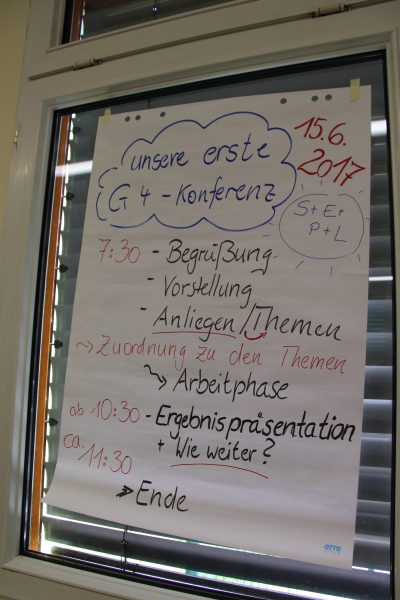 unsere erste
G 4 - Konferenz
15.6.
2017
S+E+
P+L
7:30 - Begrüßung
- Vorstellung
- Anliegen/Themen
~> Zuordnung zu den Themen
~> Arbeitphase
ab 10:30 - Ergebnispräsentation
+ Wie weiter?
ca. 11:30
» Ende
OTTO